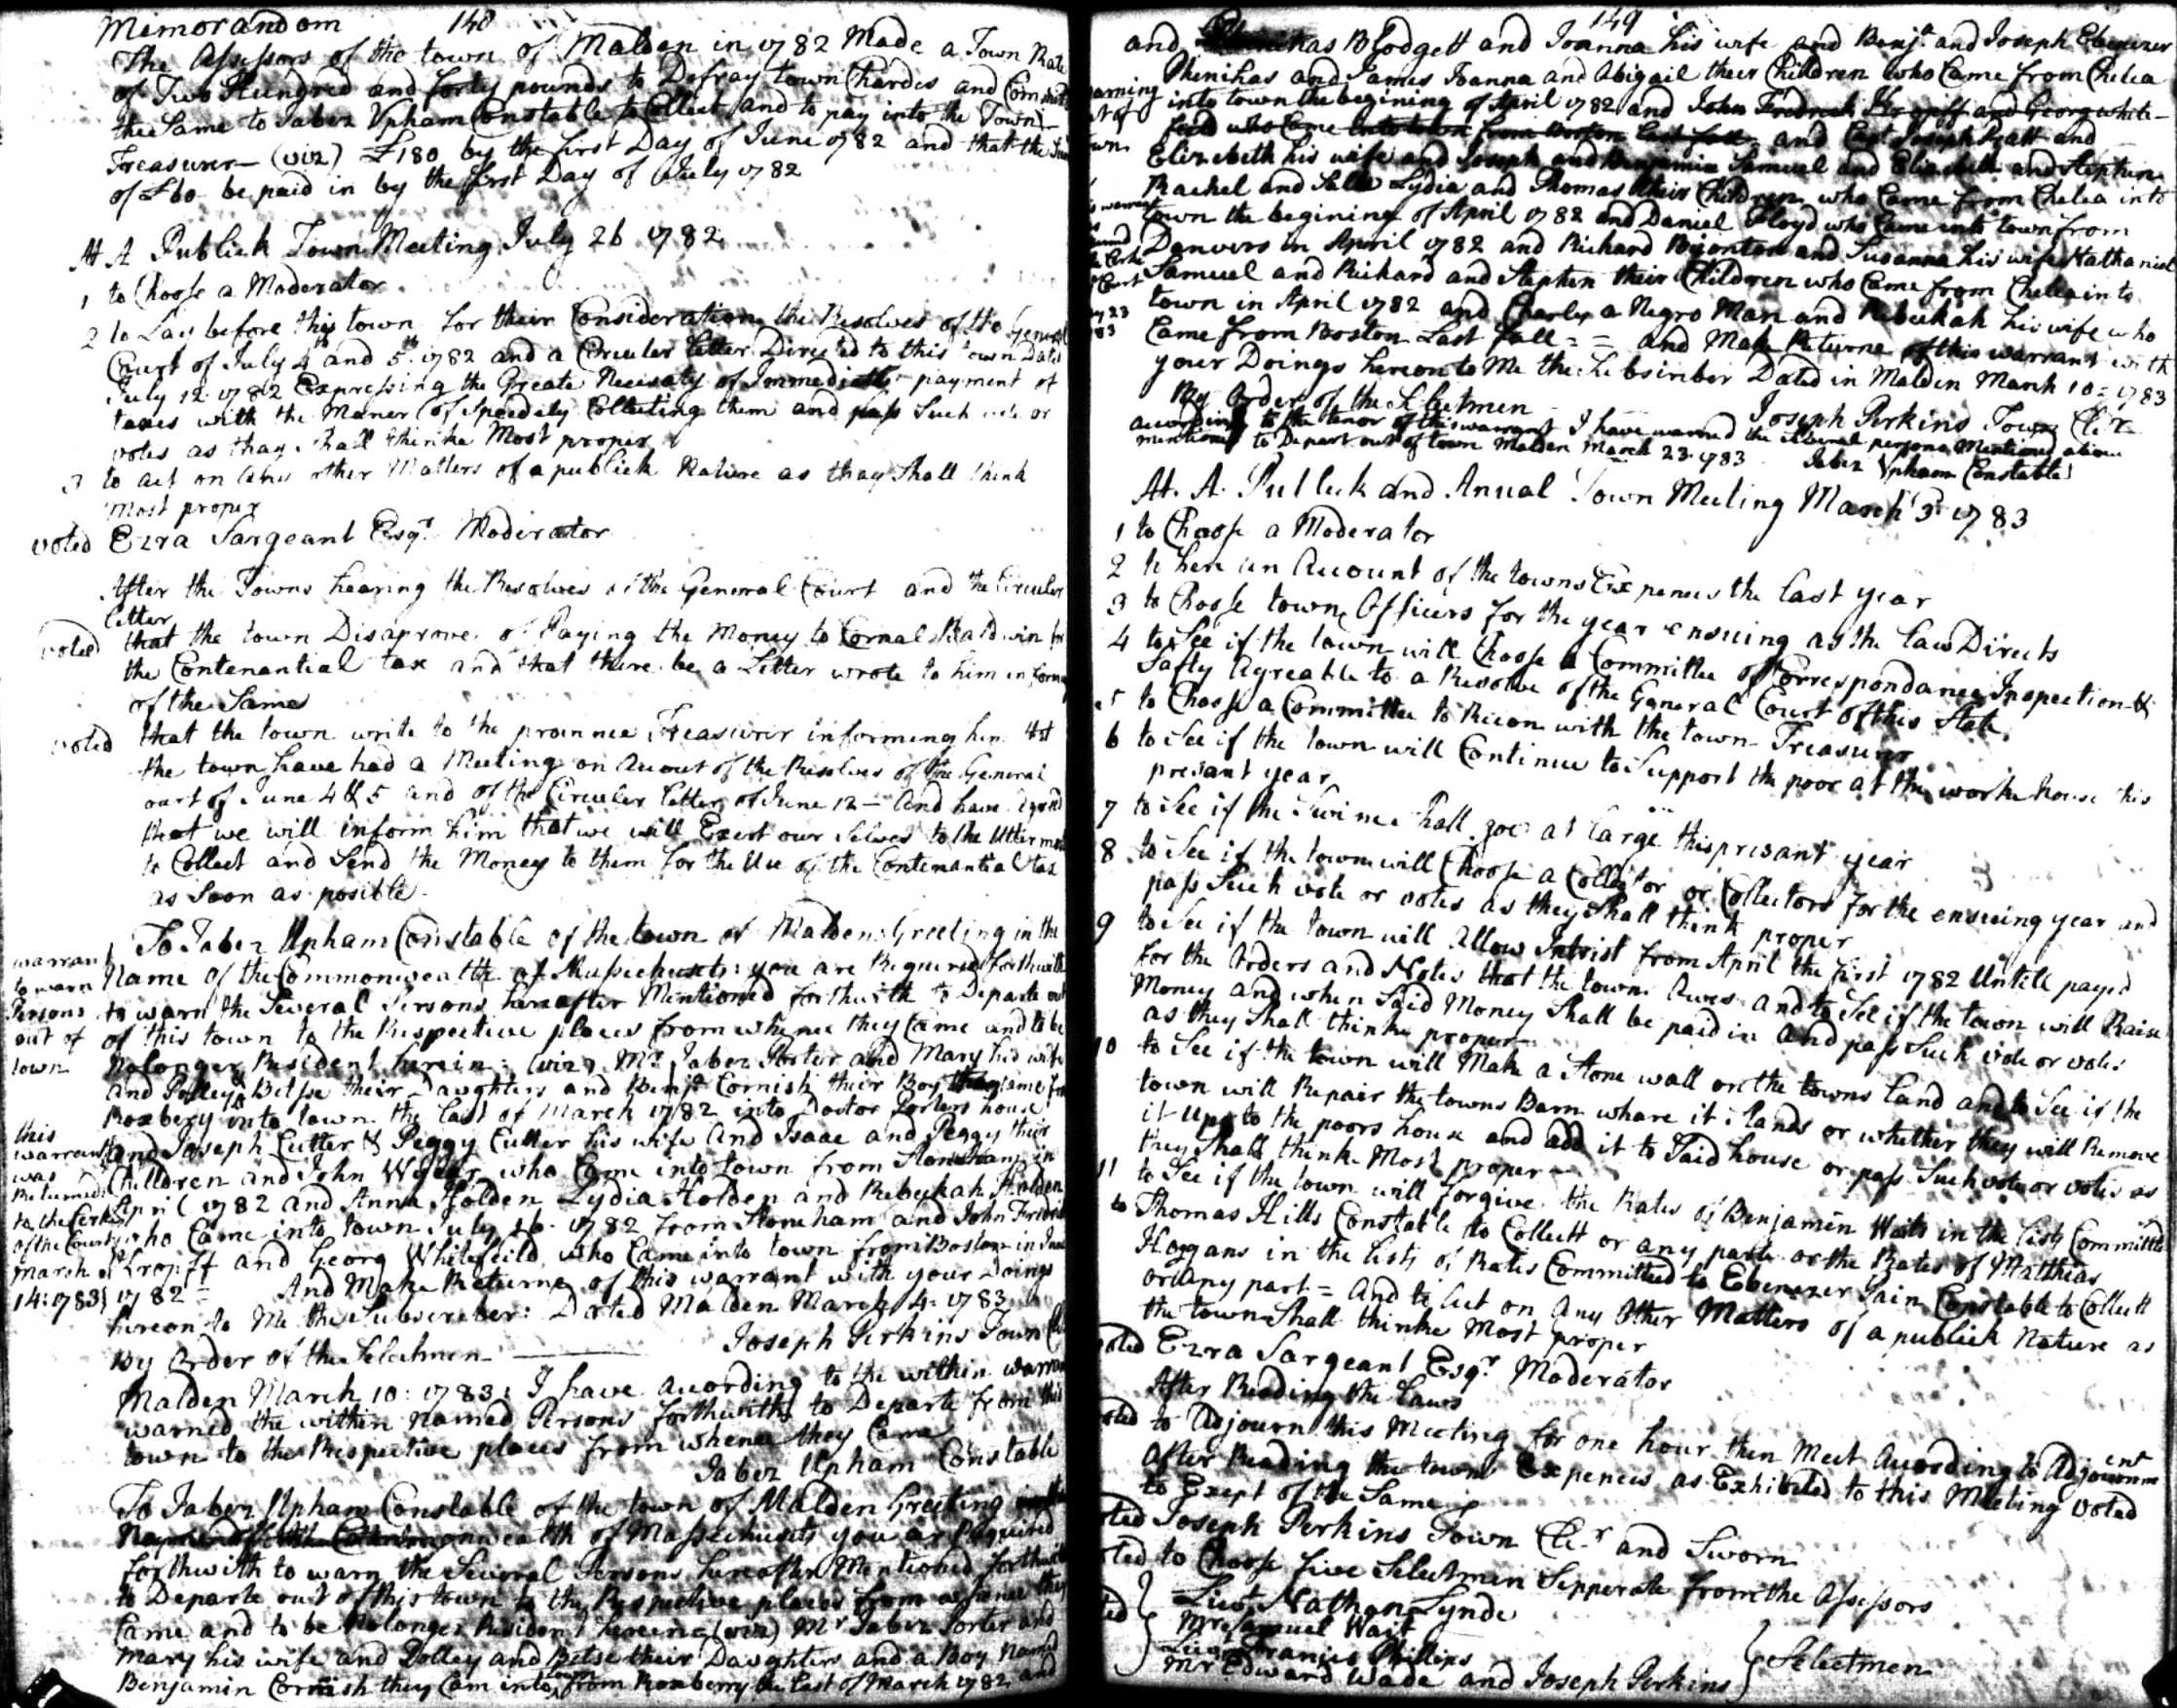 Memorandom 148
The Assessors of the town of Maldon in 1782 Made a Town Rate
of Two Hundred and forty pounds to Defray town Chardes and Committ
the Same to Jabez Upham Constable to Collect and to pay into the Town
Treasurer (viz) £180 by the first Day of June 1782 and that the
of £60 be paid in by the first Day of July 1782
At A Publick Town Meeting July 26 1782
1 to Choose a Moderator
2 to Lay before this town for their Consideration the Resolves of the General
Court of July 4th and 5th 1782 and a Circuler Letter Directed to this town Dated
July 12 1782 Expressing the Greate Necisaty of Immediatte payment of
taxes with the Maner of Speedely Collecting them and pass Such vote or
votes as thay Shall thinke Most proper
3 to act on other Matters of a publick Nature as thay Shall think
Most proper
voted Ezra Sargeant Esqr Moderator
After the Towns hearing the Resolves of the General Court and the Circuler
Letter
voted that the town Disaprove of Paying the Money to Cornal Baldwin for
the Contenantial tax and that there be a Letter wrote to him in form
of the Same
voted that the town write to the provinnce Treasurer informing him that
the town have had a Meeting on Acount of the Resolves of the General
Court of June 4 & 5 and of the Circuler Letter of June 12 - And have agreed
that we will inform him that we will Exert our Selves to the Uttermost
to Collect and Send the Money to them for the Use of the Contenantial tax
as Soon as posible
warrant to warn Persons out of town
To Jabez Upham Constable of the town of Malden Greeting in the
Name of the Commonwealth of Massechusets: you are Required forthwith
to warn the Several Persons hereafter Mentioned forthwith to Departe out
of this town to the Respective places from whence they Came and to be
Nolonger Resident herein: (viz) Mr Jabez Porter and Mary his wife
and Polley & Betsse their Daughters and Benja Cornish their Boy they came from
Roxbery into town the last of March 1782 into Doctor Porters house
this warrant was Returned to the Clerk of the Court March 14: 1783
and Joseph Cutter & Peggy Cutter his wife And Isaac and Peggy their
Children and John who Came into town from Stoneham in
April 1782 and Anna Holden Lydia Holden and Rebeckah Holden
who Came into town July 16 1782 from Stoneham and John Fridrick
Kropff and Georg Whitefeild who Came into town from Boston in
1782 = And Make Returne of this warrant with your Doings
hereon to Me the Subscriber: Dated Malden March 4: 1783
By Order of the Selectmen Joseph Perkins Town
Malden March 10: 1783: I have acording to the within warrant
warned the within named Persons forthwith to Departe from this
town to the Respective places from whence they Came
Jabez Upham Constable
To Jabez Upham Constable of the town of Malden Greeting
Commonwealth of Massechusets you ar Required
forthwith to warn the Several Persons hereafter Mentioned forthwith
to Departe out of this town to the Respective places from whence they
Came and to be Nolonger Resident herein (viz) Mr Jabez Porter and
Mary his wife and Polley and Betse their Daughters and a Boy Named
Benjamin Cornish they Cam into town from Roxberry the Last of March 1782 and
149
and Blodgett and Joanna his wife and Benja and Joseph Ebenezer
Phenihas and James Joanna and Abigail their Children who Came from Chelsea
into town the begining of April 1782 and John Fredrick Kropff and Georg white-
feild who Came Into town from Boston Last fall and Capt Joseph Pratt and
Elizebeth his wife and Joseph and Benjamin Samuel and Elizebeth and Stephen
Rachel and Lydia and Thomas their Children who Came from Chelea into
town the begining of April 1782 and Daniel Floyd who Came into town from
Danvers in April 1782 and Richard and Susanna his wife Nathaniel
Samuel and Richard and Stephen their Children who Came from Chelea into
town in April 1782 and Charly a Negro Man and Rebeckah his wife who
Came from Boston Last fall = = and Make Returne of this warrant with
your Doings hereon to Me the Subscriber Dated in Malden March 10 = 1783
By Order of the Selectmen Joseph Perkins Town Cler
acording to the tenor of this warrant I have warned the several persons Mentioned above
mentioned to Depart out of town Malden March 23 1783 Jabez Upham Constable
At A Publeck and Anual Town Meeting March 3 1783
1 to Choose a Moderator
2 to here an Acount of the towns Expences the last year
3 to Choose town Officers for the year ensuing as the Law Directs
4 to See if the town will Choose a Committee of Correspondance Inspection &
Safty Agreable to a Resolve of the General Court of this State
5 to Choose a Committee to Recon with the town Treasurer
6 to See if the town will Continue to Support the poor at the worke house this
presant year
7 to See if the Swine Shall goe at Large this presant year
8 to See if the town will Choose a Collector or Collectors for the ensuing year and
pass Such vote or votes as they Shall think proper
9 to See if the town will Allow Intrist from April the first 1782 Untill payed
for the Orders and Notes that the town Awes and to See if the town will Raise
Money and when Said Money Shall be paid in And pass Such vote or votes
as they Shall thinke proper
10 to See if the town will Make a Stone wall on the towns Land and to See if the
town will Repair the towns Barn whare it Stands or whether they will Remove
it up to the poors house and add it to Said house or pass Such vote or votes as
they Shall think Most proper
11 to See if the town will forgive the Rates of Benjamin Waits in the Lists Committed
to Thomas Hills Constable to Collett or any parte or the Rates of Matthias
Hoggans in the Lists of Rates Committed to Ebenezer Pain Constable to Collett
or any part = And to Act on Any Other Matters of a publick Nature as
the town Shall thinke Most proper
voted Ezra Sargeant Esqr Moderator
After Reading the Laws
voted to Adjourn this Meeting for one hour then Meet Acording to Adjournment
After Reading the town Expences as Exhibited to this Meeting voted
to Exept of the Same
voted Joseph Perkins Town Cler and Sworn
voted to Choose five Selectmen Sepperate from the Assessors
Liut Nathan Lynde
Mr Samuel Wait
Francis Phillips
Mr Edward Wade and Joseph Perkins
Selectmen